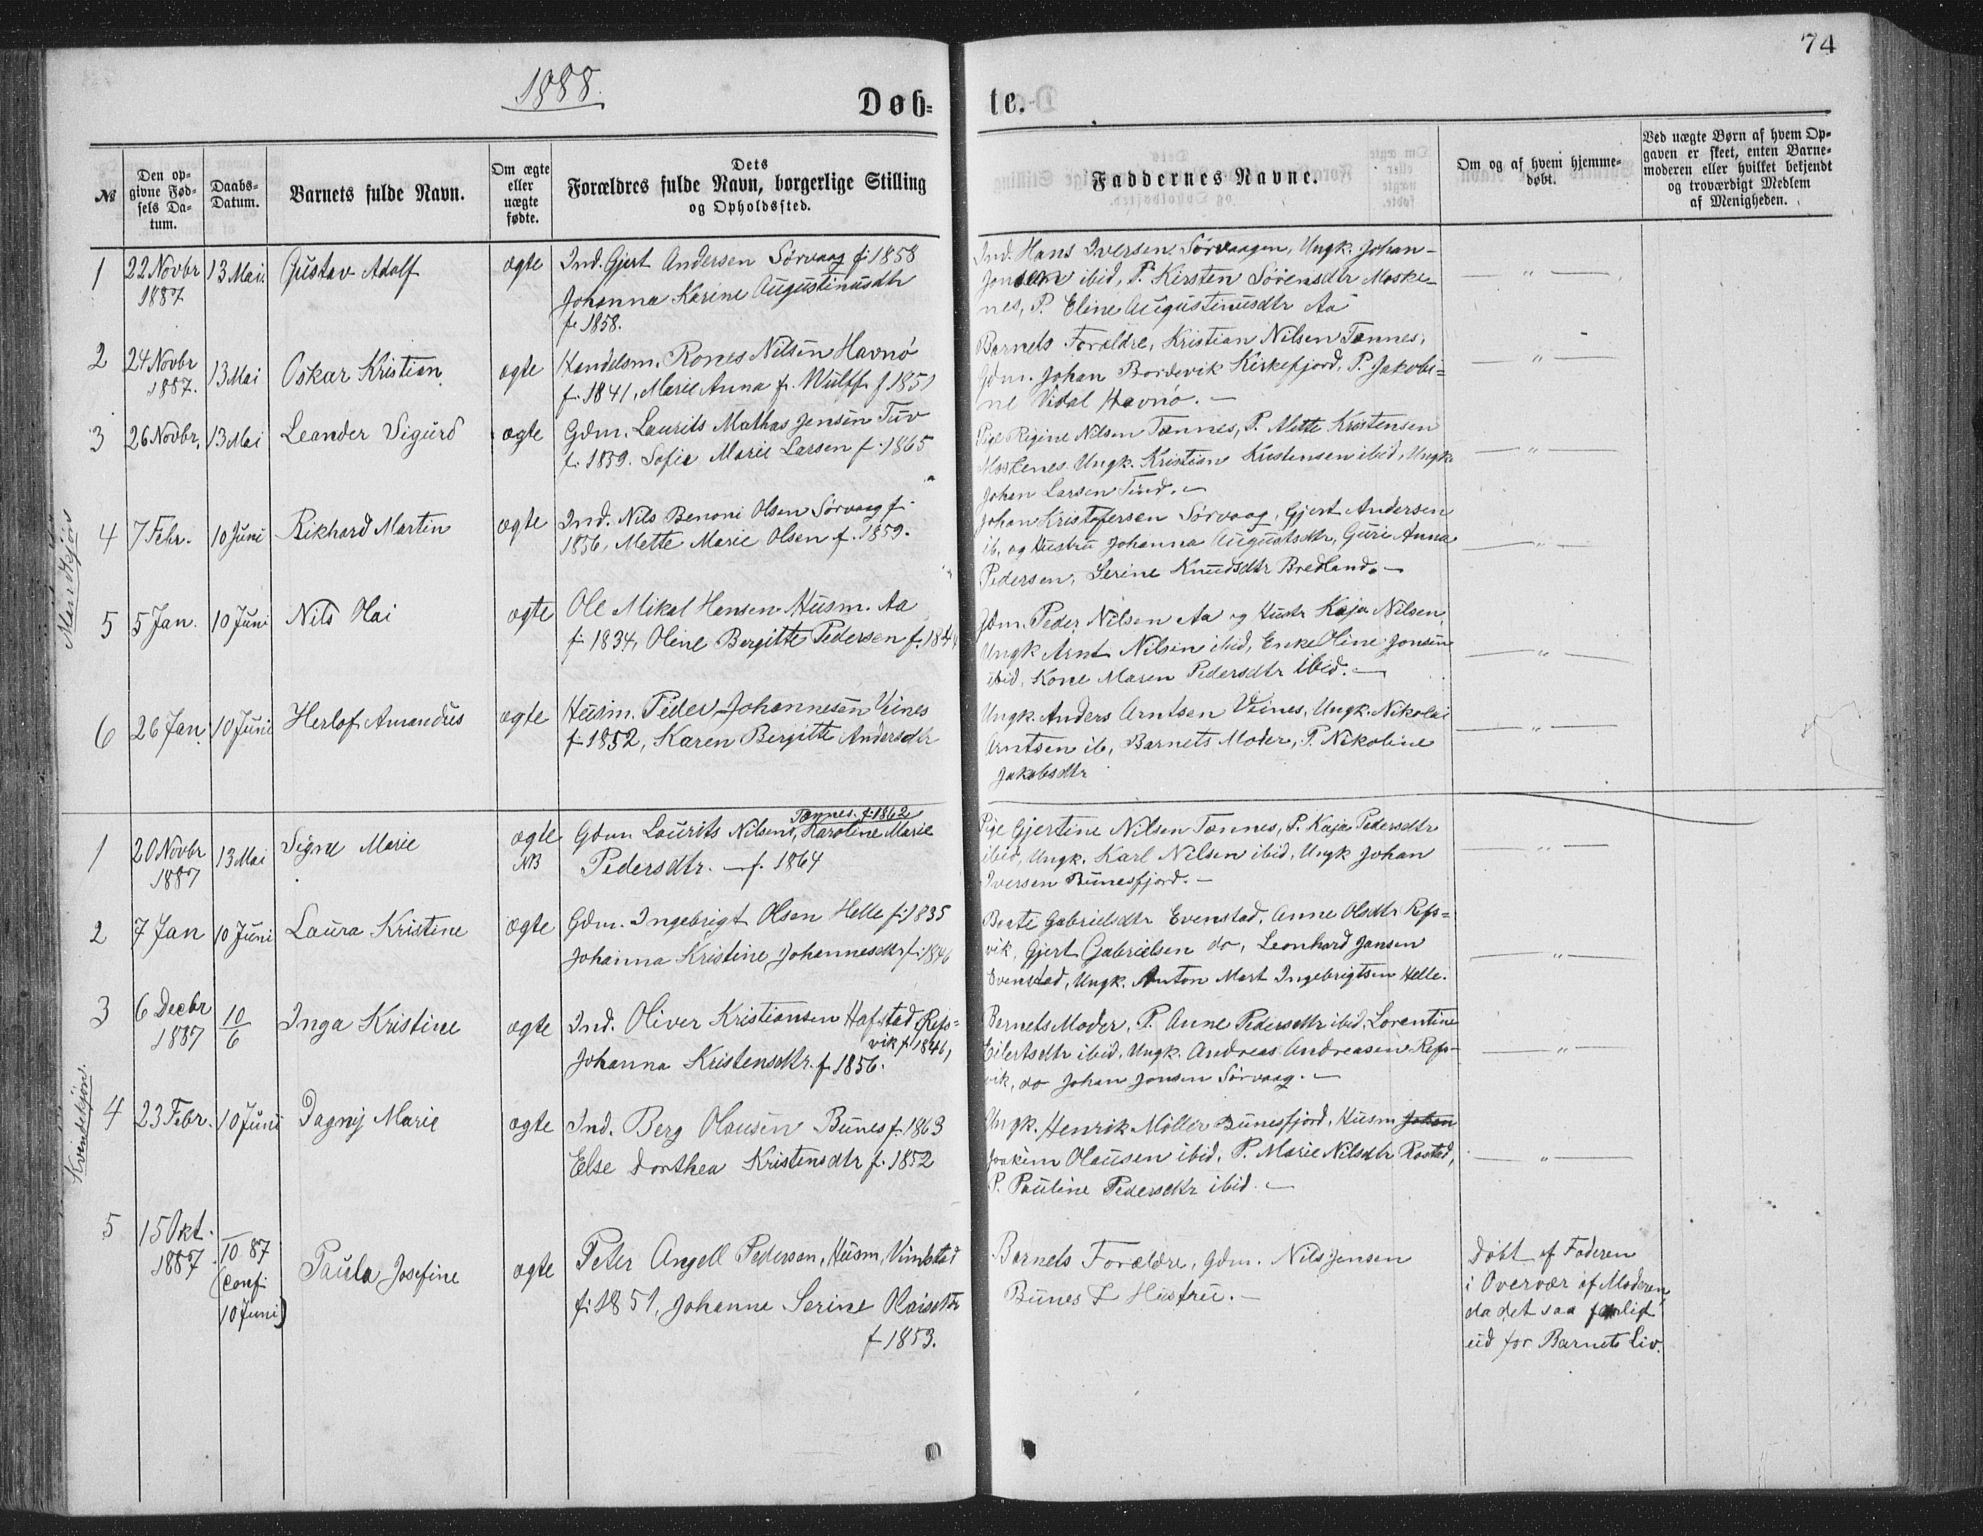 74
1888.
Døb= te.
№
Den op-
givne Fød-
sels Da-
tum.
Daabs-
Datum.
Barnets fulde Navn.
Om ægte
eller
uægte
fødte.
Dets
Forældres fulde Navn, borgerlige Stilling
og Opholdssted.
Faddernes Navne.
Om og af hvem hjemme-
døbt.
Ved uægte Børn af hvem Op-
gaven er skeet, enten Barne-
moderen eller hvilket bekjendt
og troværdigt Medlem
af Menigheden.
Mandkjøn
1 22 Novbr 1887 13 Mai. Gustav Adolf ægte
Ind. Gjert Andersen Sørvaag f. 1858
Johanna Karine Augustinusdtr
f. 1858.
Ind. Hans Iversen Sørvaagen, Ungk. Johan-
Jonsen ibid, P. Kirsten Sørensdtr Moske-
nes, P. Eline Augustinusdtr Aa
— " —
2 24 Novbr 1887. 13 Mai Oskar Kristian ægte
Handelsm. Rones Nilsen Havnø
f. 1841, Marie Anna f. Wulff f 1851
Barnets Forældre, Kristian Nilsen Tennes,
Gdm. Johan Bordevik Kirkefjord, P. Jakobi-
ne Vidal Havnø. —
— " —
3 26 Novbr. 13 Mai Leander Sigurd ægte
Gdm. Laurits Mathas Jensen Tuv
f. 1839. Sofie Marie Larsen f. 1865
Pige Regine Nilsen Tennes, P. Mette Kristensen
Moskenes Ungk. Kristian Kristensen ibid, Ungk.
Johan Larsen Tind. —
— " —
4 7 Febr. 10 Juni Rikhard Martin ægte
Ind. Nils Benoni Olsen Sørvaag f.
1856, Mette Marie Olsen f. 1859.
Johan Kristofersen Sørvaag, Gjert Andersen
ib. og Hustru Johanna Augustsdtr, Guri Anna
Pedersen, Serine Knudsdtr Bredland. —
— " —
5 5 Jan. 10 Juni Nils Olai ægte
Ole Mikal Hansen Husm. Aa
f. 1834, Olene Bergitte Pedersen f. 1844
Gdm. Peder Nilsen Aa og Hustr Kaja Nilsen,
Ungk Arnt Nilsen ibid, Enke Oline Jonsen
ibid, Kone Maren Pedersdtr ibid. —
— " —
6 26 Jan. 10 Juni Herlof Amandus ægte
Husm. Peder Johannesen Vines
f. 1852, Karen Bergitte Andersdtr
Ungk. Anders Arntsen Vines, Ungk. Nikolai
Arntsen ib, Barnets Moder, P. Nikoline
Jakobsdtr
— " —
Kvindekjøn.
1 20 Novbr 1887 13 Mai Signe Marie ægte NB
Tennes. f. 1862
Gdm Laurits Nilsen, Karoline Marie
Pedersdtr. — f. 1864
Pige Gjertine Nilsen Tennes, P. Kaja Pedersdtr
ibid, Ungk. Karl Nilsen ibid, Ungk Johan
Iversen Bunesfjord. —
— " —
2 7 Jan 10 Juni Laura Kristine ægte
Gdm. Ingebrigt Olsen Helle f. 1835
Johanna Kristine Johannesdtr f. 1846
Beate Gabrielsdtr Evenstad, Anne Olsdtr Refs-
vik, Gjert Gabrielsen do, Leonhard Jansen
Evenstad, Ungk. Anton Mart Ingebrigtsen Helle.
— " —
3 6 Decbr 1887 10/6 Inga Kristine ægte
Ind. Oliver Kristiansen Hafstad, Refs-
vik f 1846,
Johanna Kristensdtr. f 1856.
Barnets Moder, P. Anne Pedersdtr ibid, Lorentine
Eilertsdtr ibid, Ungk. Andreas Andreasen Refs-
vik, do Johan Jonsen Sørvaag. —
— " —
4 23 Febr. 10 Juni Dagny Marie ægte
Ind. Berg Olausen Bunes f. 1863
Else Dorthea Kristensdtr f. 1852
Ungk. Henrik Möller Bunesfjord, Husm Johan
Joakim Olausen ibid, P. Marie Nilsdtr Rostad,
P. Pauline Pedersdtr ibid. —
— " —
5 15 Okt. 1887. 10 87 (conf. 10 Juni) Paula Josefine ægte
Peter Angell Pedersen, Husm, Vinstad
f. 1851, Johanne Serine Olaisdtr
f 1853.
Barnets Forældre, Gdm. Nils Jensen
Bunes & Hustru. —
Døbt af Faderen
i Overvær af Moderen,
da det saa farligt
ud for Barnets Liv.